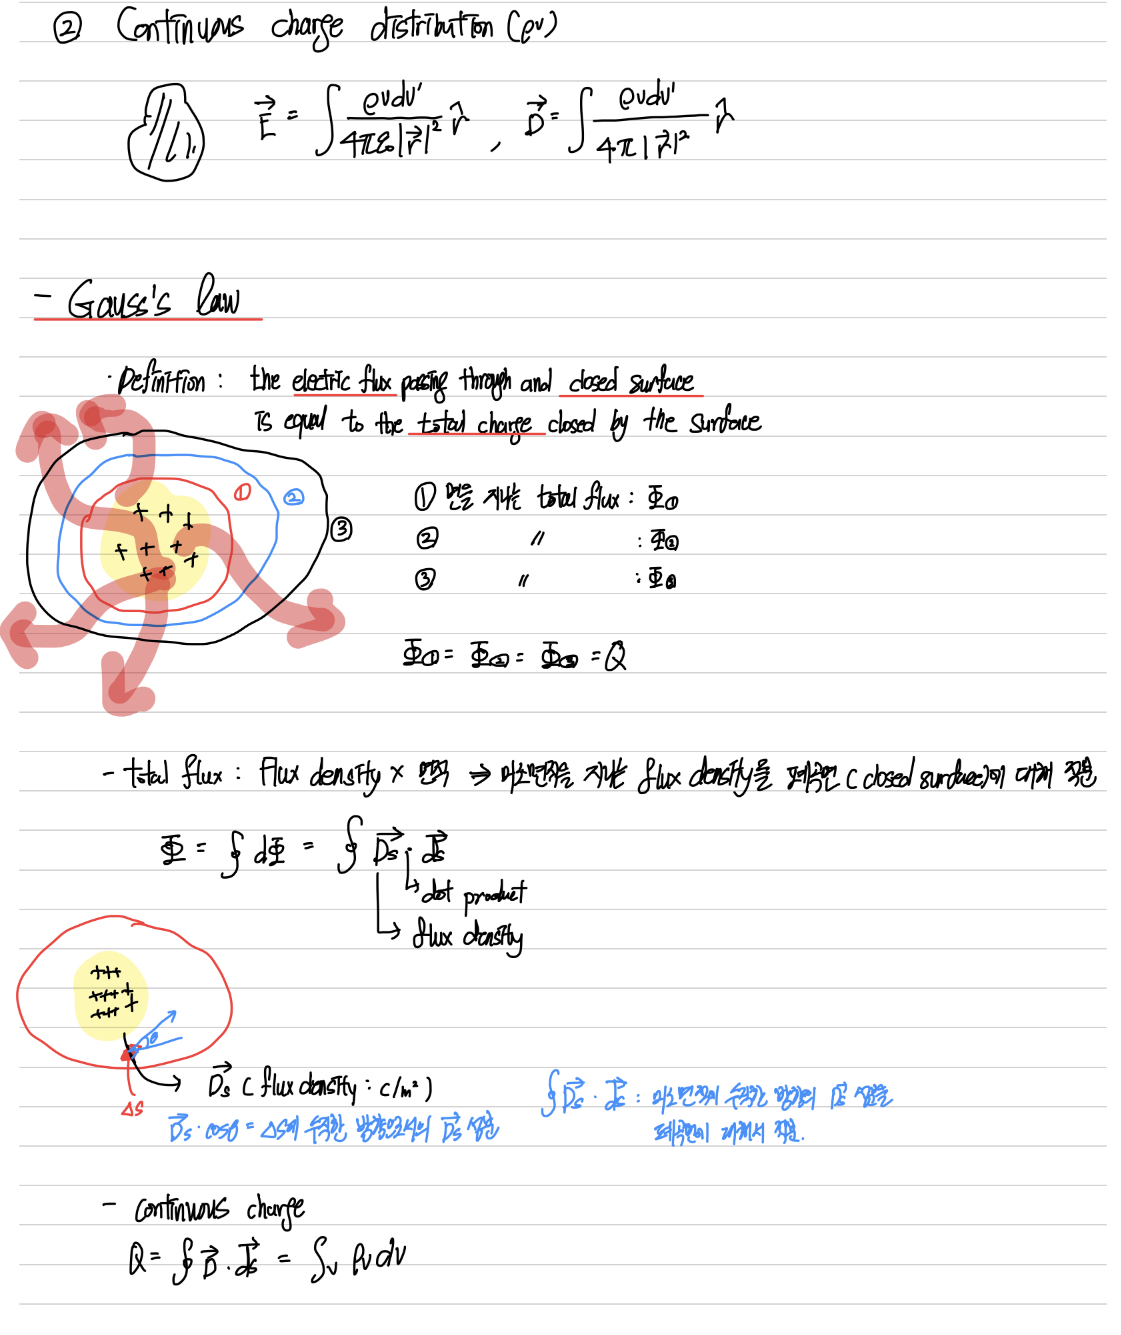 ② Continuous charge distribution (ρv)
E⃗ = ∫ ρvdv' / 4πε₀|r⃗|² r̂ , D⃗ = ∫ ρvdv' / 4π|r⃗|² r̂
- Gauss's law
· Definition : the electric flux passing through and closed surface
is equal to the total charge closed by the surface
① ② ③
① 면을 지나는 total flux : Φ①
② 〃 : Φ②
③ 〃 : Φ③
Φ① = Φ② = Φ③ = Q
- total flux : Flux density × 면적 ⇒ 미소면적을 지나는 flux density를 폐곡면 (closed surface)에 대해 적분
Φ = ∮ dΦ = ∮ D⃗s · d⃗s
↳ dot product
↳ flux density
+++
+++ +
+++ +
θ
D⃗s (flux density : c/m²)
ΔS
D⃗s · cosθ = ΔS에 수직한 방향으로서의 D⃗s 성분
∮ D⃗s · d⃗s : 미소면적에 수직한 방향의 D⃗s 성분을
폐곡면에 대해서 적분.
- continuous charge
Q = ∮ D⃗ · d⃗s = ∫v ρv dv